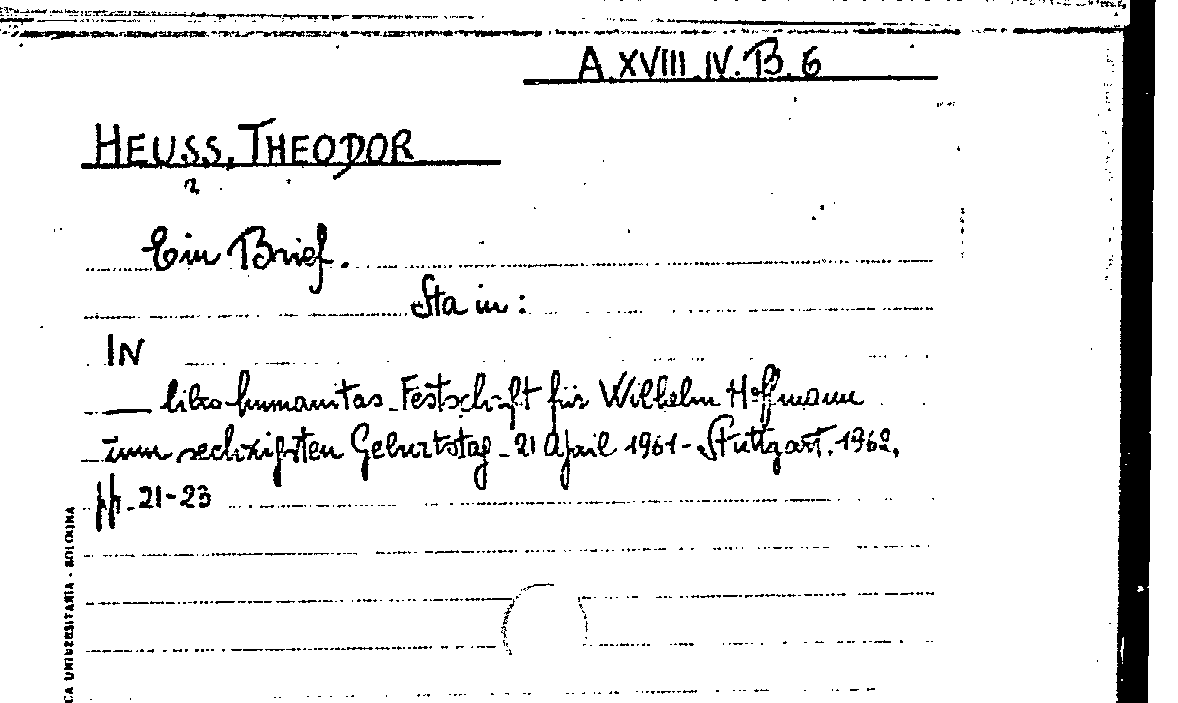 A.XVIII.IV.B.6
HEUSS, THEODOR
Ein Brief.
Sta in:
IN
libro humanitas - Festschrift für Wilhelm Hoffmann
zum sechzigsten Geburtstag - 21 April 1961 - Stuttgart. 1962,
pp. 21-23
CA UNIVERSITARIA - BOLOGNA